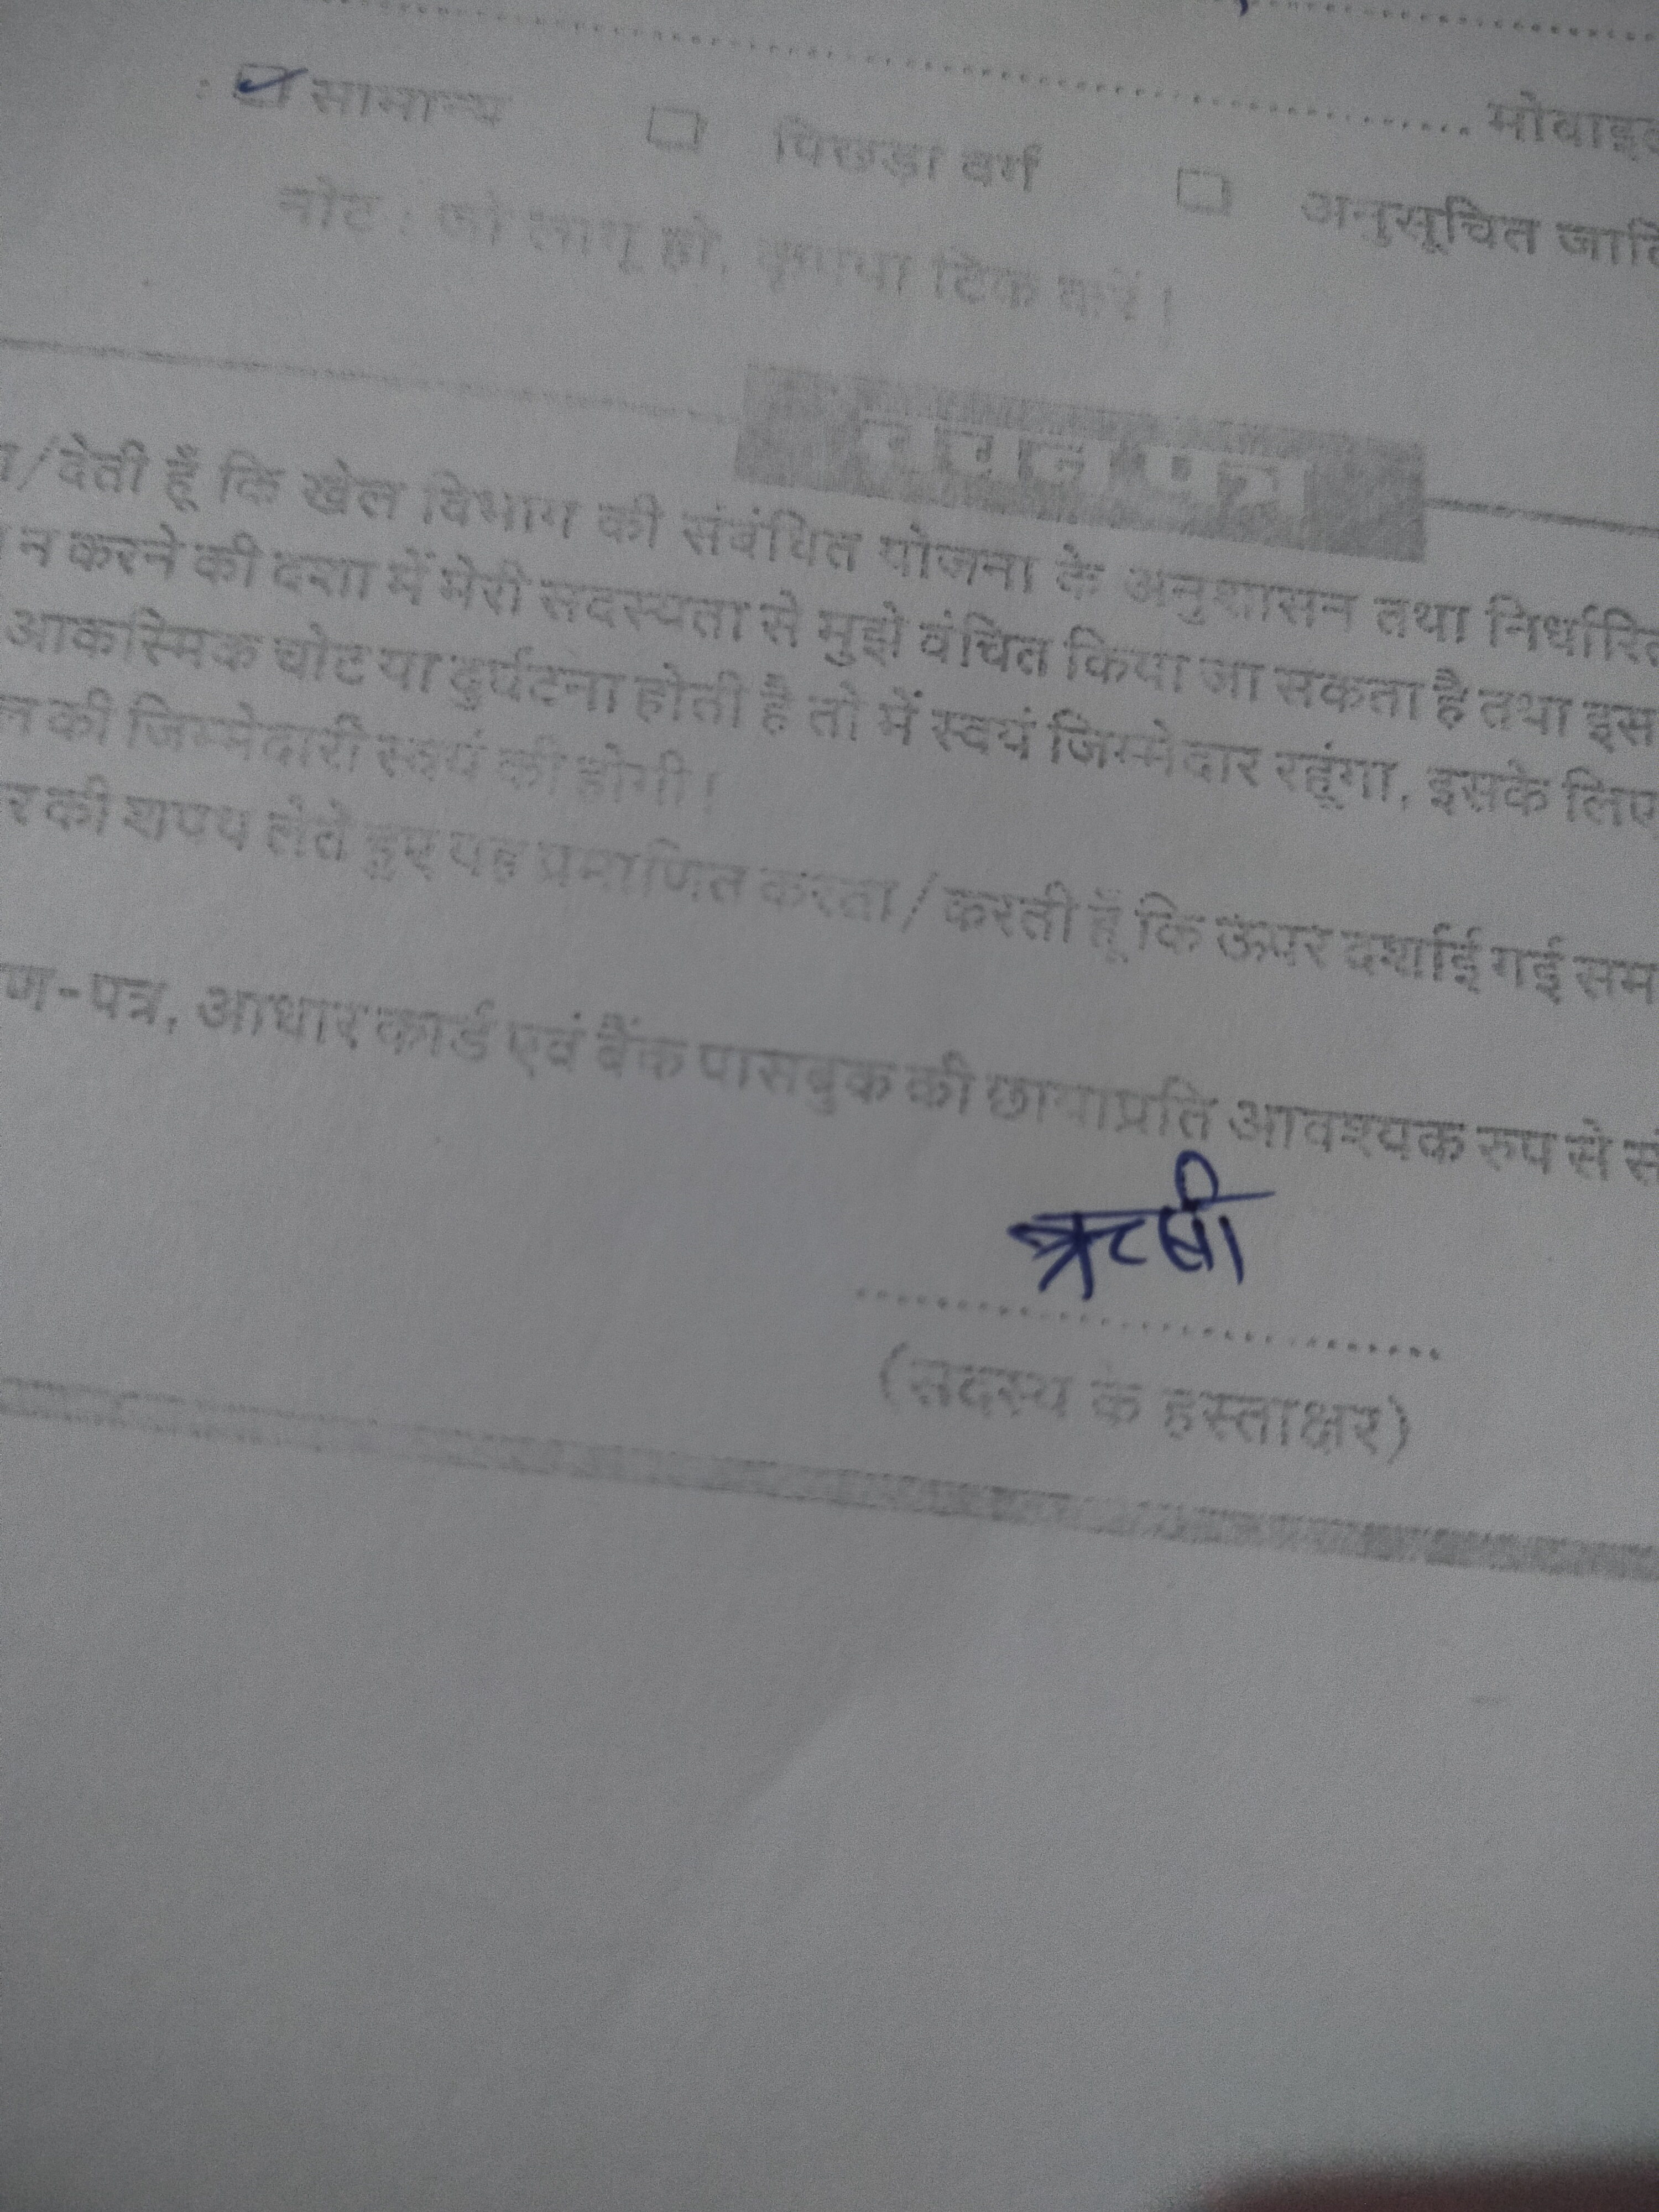 मोबाइल
: सामान्य पिछड़ा वर्ग अनुसूचित जाति
नोट : जो लागू हो, कृपया टिक करें।
/देती हूँ कि खेल विभाग की संबंधित योजना के अनुशासन तथा निर्धारित
न करने की दशा में मेरी सदस्यता से मुझे वंचित किया जा सकता है तथा इस
आकस्मिक चोट या दुर्घटना होती है तो में स्वयं जिम्मेदार रहूंगा, इसके लिए
न की जिम्मेदारी स्वयं की होगी।
र की शपथ लेते हुए यह प्रमाणित करता / करती हूँ कि ऊपर दर्शाई गई सम
ण-पत्र, आधार कार्ड एवं बैंक पासबुक की छायाप्रति आवश्यक रुप से सं
ऋषी
(सदस्य के हस्ताक्षर)